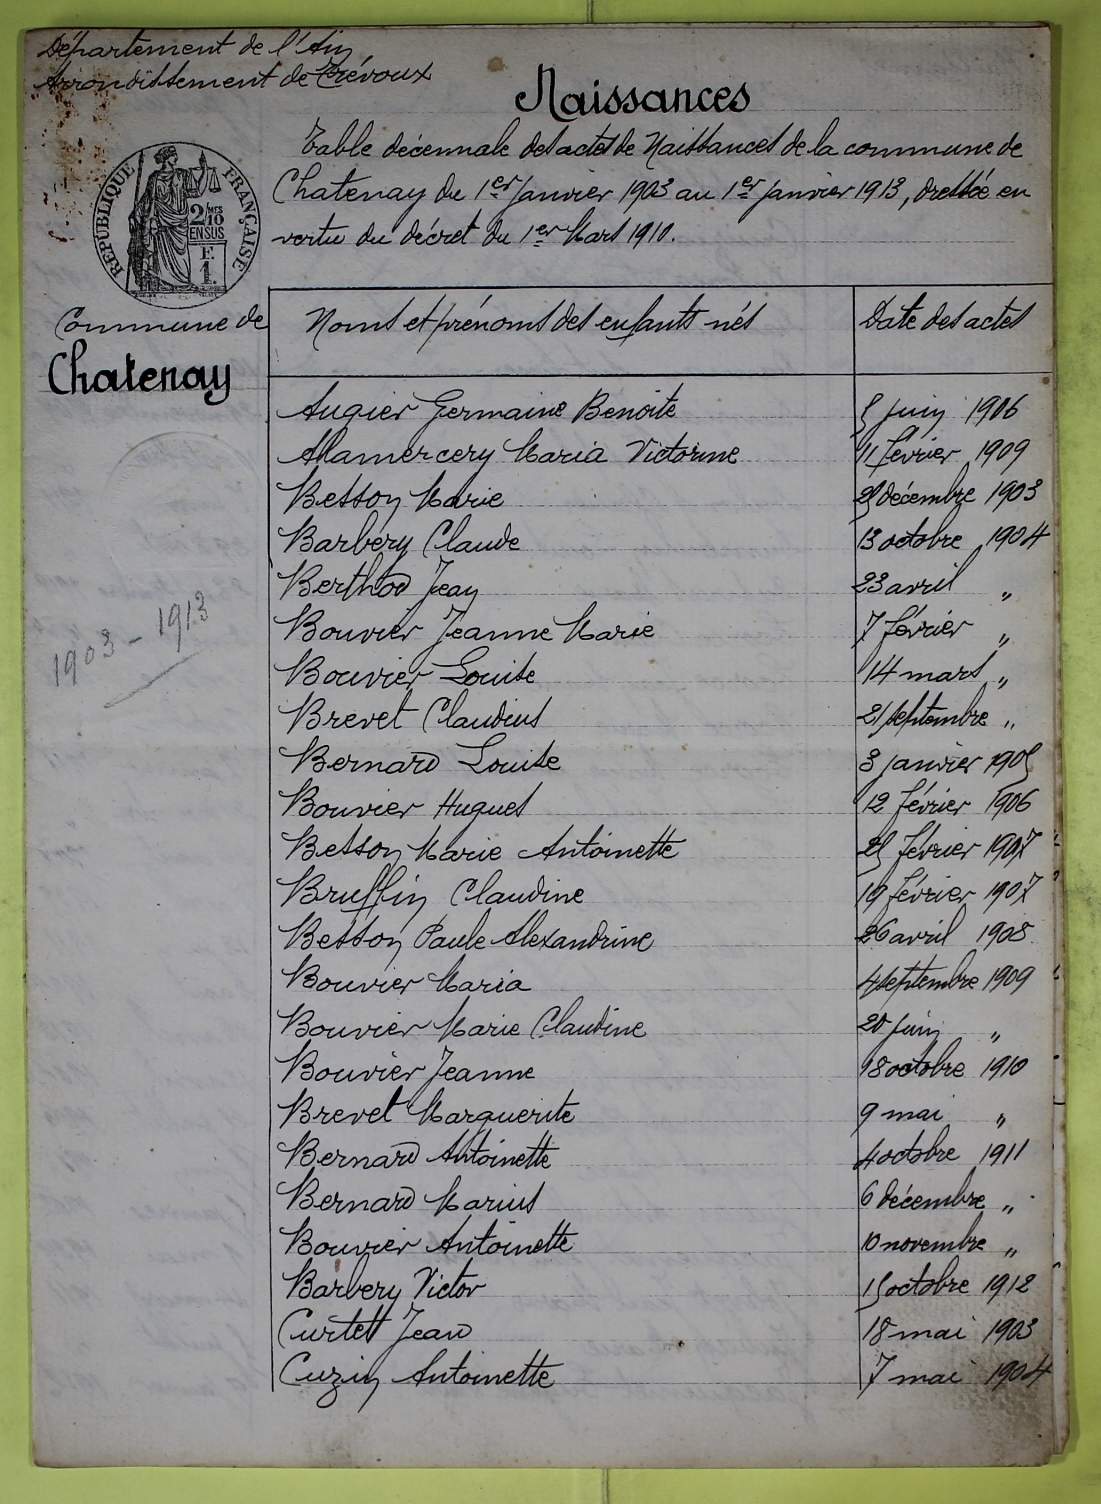 Département de l'Ain
Arrondissement de Trévoux
Naissances
Table décennale des actes de Naissances de la commune de
Chatenay du 1er Janvier 1903 au 1er Janvier 1913, dressée en
vertu du décret du 1er Mars 1910.
RÉPUBLIQUE FRANÇAISE
2/10 MES
EN SUS
F.
1.
Commune de
Chatenay
1903 - 1913
Noms et prénoms des enfants nés Date des actes
Augier Germaine Benoite 5 Juin 1906
Alamercery Maria Victorine 11 février 1909
Besson Marie 25 décembre 1903
Barbery Claude 13 octobre 1904
Berthod Jean 23 avril "
Bouvier Jeanne Marie 7 février "
Bouvier Louise 14 mars "
Brevet Claudius 21 septembre "
Bernard Louise 3 janvier 1905
Bouvier Hugues 12 février 1906
Besson Marie Antoinette 25 février 1907
Bruffin Claudine 19 février 1907
Besson Paule Alexandrine 26 avril 1908
Bouvier Maria 4 septembre 1909
Bouvier Marie Claudine 20 Juin "
Bouvier Jeanne 18 octobre 1910
Brevet Marguerite 9 mai "
Bernard Antoinette 4 octobre 1911
Bernard Marius 6 décembre "
Bouvier Antoinette 10 novembre "
Barbery Victor 15 octobre 1912
Curtet Jean 18 mai 1903
Cuzin Antoinette 7 mai 1904